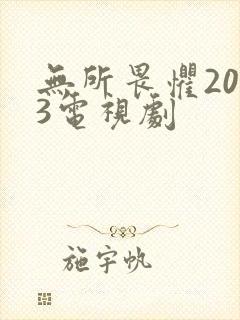 無所畏懼20
3電視劇
施宇帆